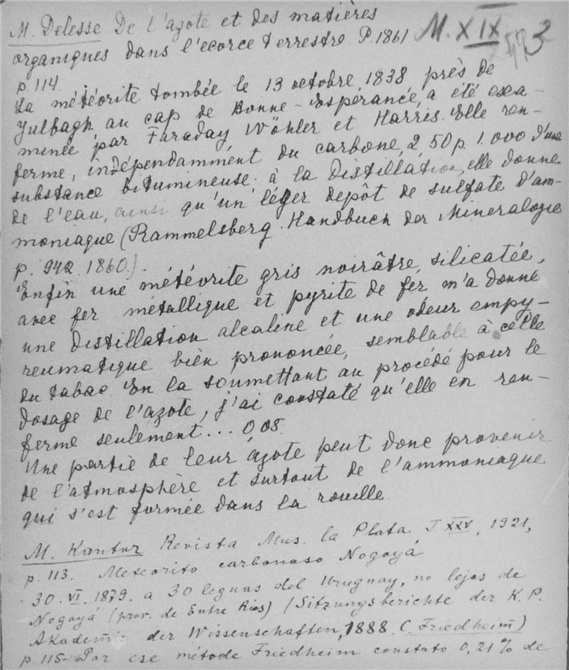 M. Delesse De l'azote et des matières
organiques dans l'ecorce terrestre. P. 1861 M. XIX
p. 114.
La météorite tombée le 13 octobre, 1838, près de
Julbagh au cap de Bonne-Espérance, a été exa-
minée par Faraday Wöhler et Harris. Elle ren-
ferme, indépendamment du carbone, 2,50 p. 1.000 d'une
substance bitumineuse. à la distillation, elle donne
de l'eau, ainsi qu'un léger depôt de sulfate d'am-
moniaque (Rammelsberg. Handbuch der Mineralogie
p. 942. 1860.)
Enfin une météorite gris noirâtre, silicatée,
avec fer métallique et pyrite de fer m'a donné
une distillation alcaline et une odeur empy-
reumatique bien prononcée, semblable à celle
du tabac. En la soumettant au procédé pour le
dosage de l'azote, j'ai constaté qu'elle en ren-
ferme seulement... 0,05.
Une partie de leur azote peut donc provenir
de l'atmosphère et surtout de l'ammoniaque
qui s'est formée dans la rouille.
M. Kantor Revista Mus. la Plata. T XXV, 1921,
p. 113. Meteorito carbonoso Nogoyá
30. VI. 1879. a 30 leguas del Uruguay, no lejos de
Nogoyá (prov. de Entre Rios) (Sitzungsberichte der K. P.
Akadem. der Wissenschaften, 1888. (Friedheim)
p. 115-116 Por ese método Friedheim constato 0,21% de